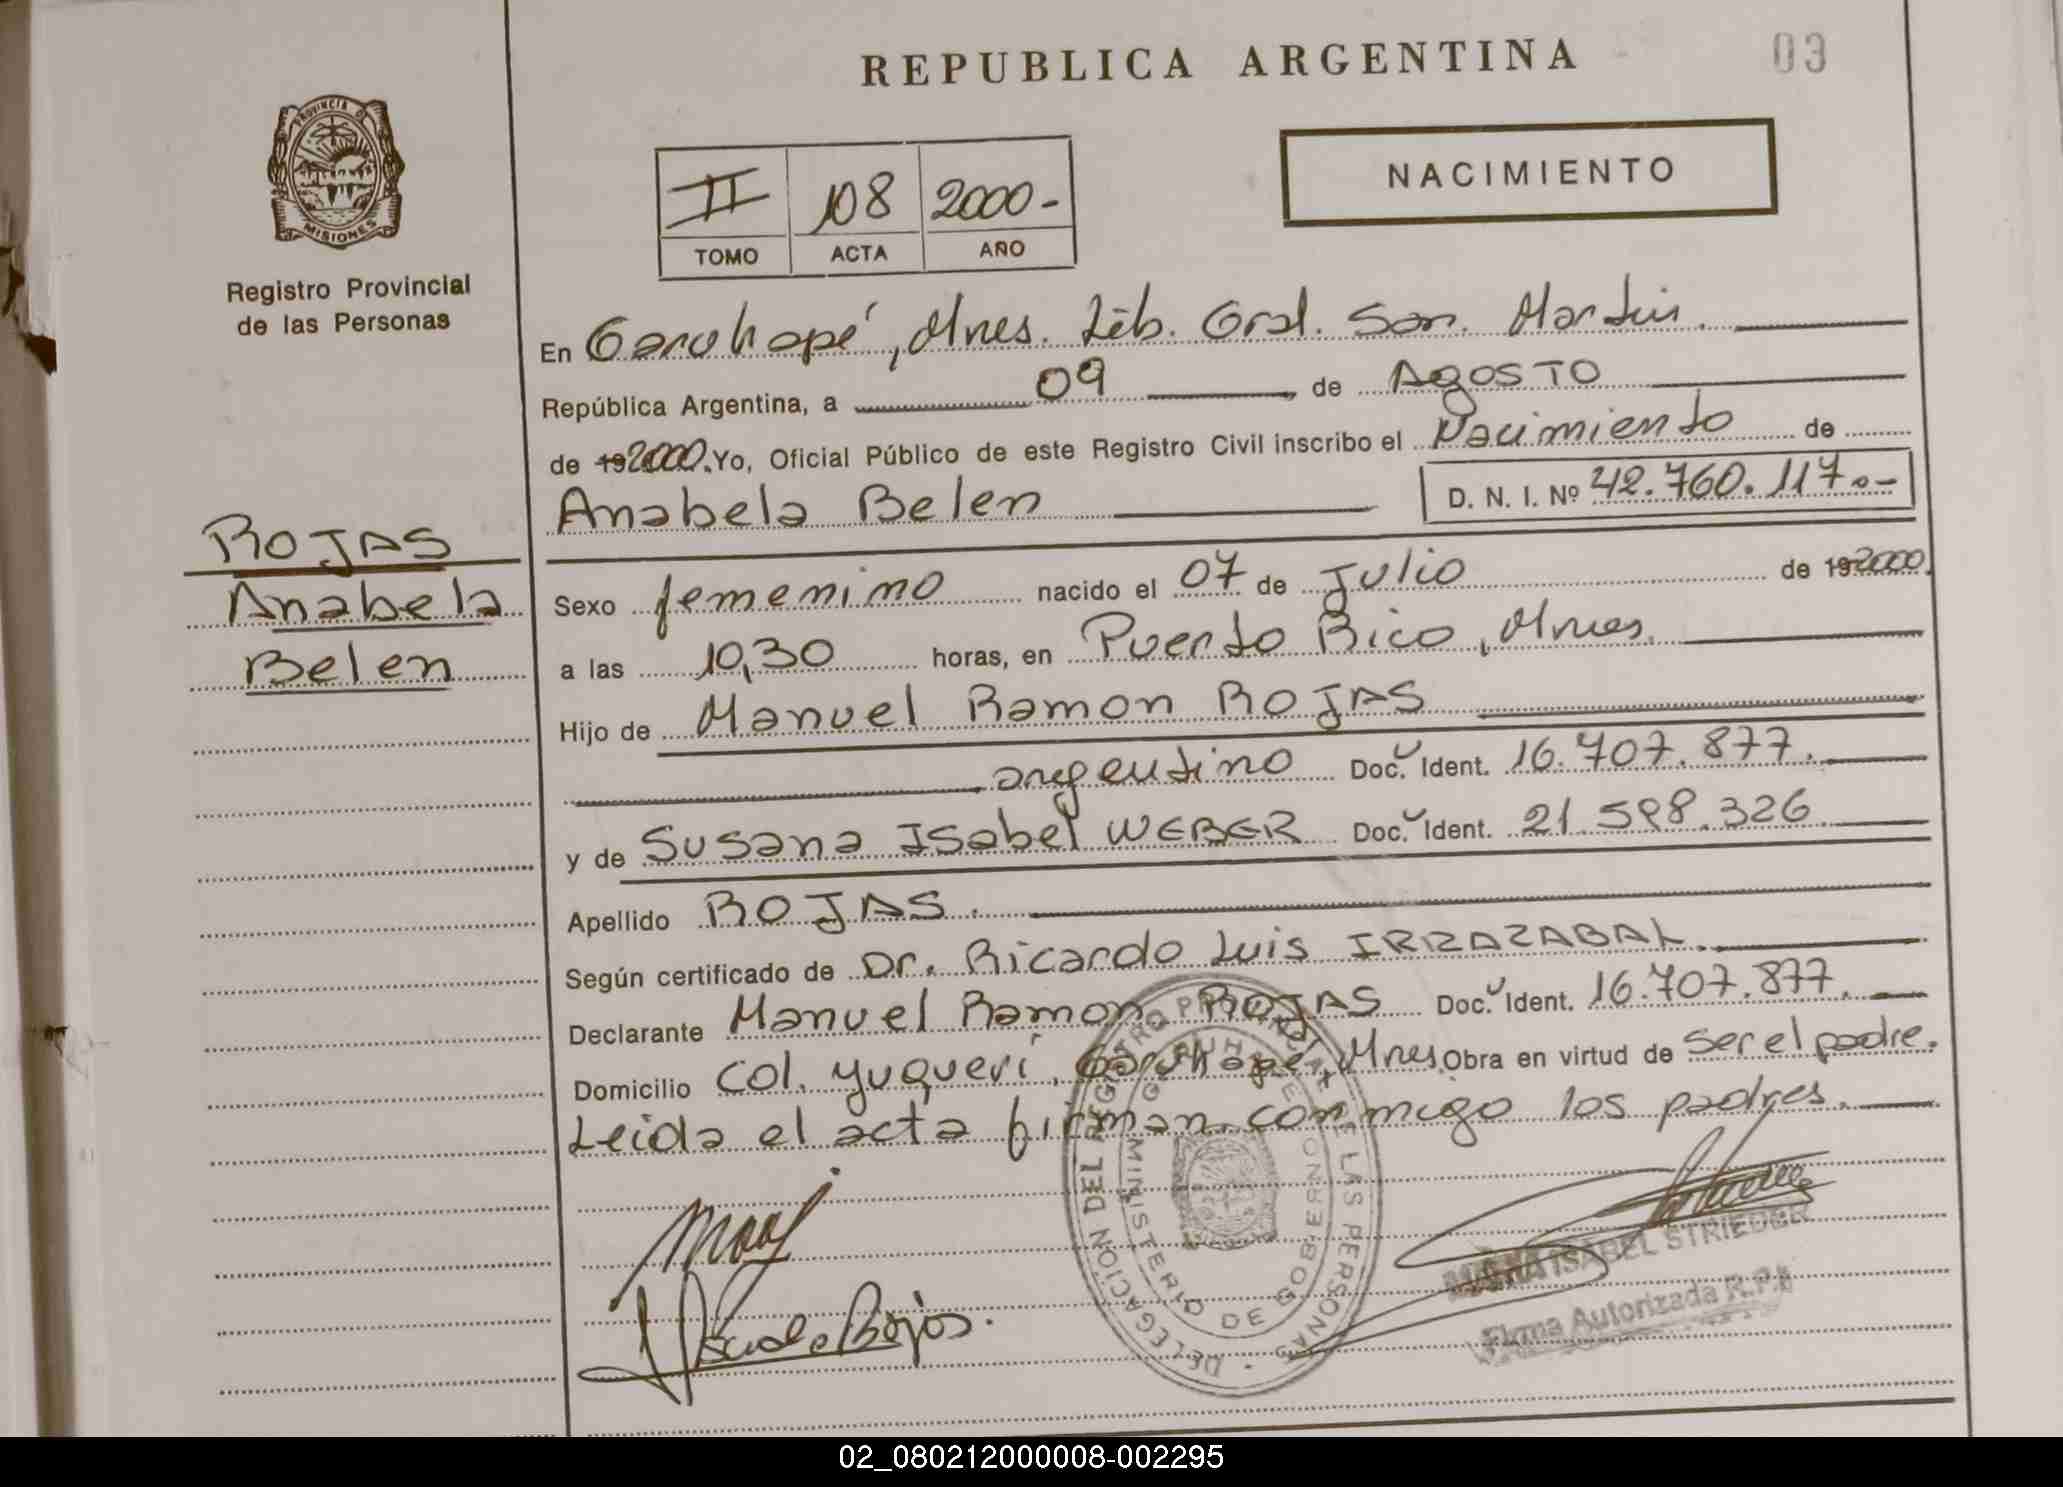 REPUBLICA ARGENTINA
03
PROVINCIA D
MISIONES
Registro Provincial
de las Personas
II 108 2000-
TOMO ACTA AÑO
NACIMIENTO
En Garuhapé, Mnes. Lib. Gral. San. Martin.
República Argentina, a 09 de AGOSTO
de 192000. Yo, Oficial Público de este Registro Civil inscribo el Nacimiento de
Anabela Belen D. N. I. Nº 42.760.117.-
ROJAS
Anabela
Belen
Sexo femenino nacido el 07 de Julio de 192000.
a las 10,30 horas, en Puerto Rico, Mnes.
Hijo de Manuel Ramon ROJAS
argentino Doc. Ident. 16.707.877.
y de Susana Isabel WEBER Doc. Ident. 21.598.326
Apellido ROJAS.
Según certificado de Dr. Ricardo Luis IRRAZABAL.
Declarante Manuel Ramon ROJAS Doc. Ident. 16.707.877.
Domicilio Col. Yuquerí, Garuhapé, Mnes. Obra en virtud de ser el padre.
Leida el acta firman conmigo los padres.
DELEGACION DEL REGISTRO PROVINCIAL DE LAS PERSONAS
MINISTERIO DE GOBIERNO
Rojas.
ISABEL STRIEDER
Firma Autorizada R.P.
02_080212000008-002295